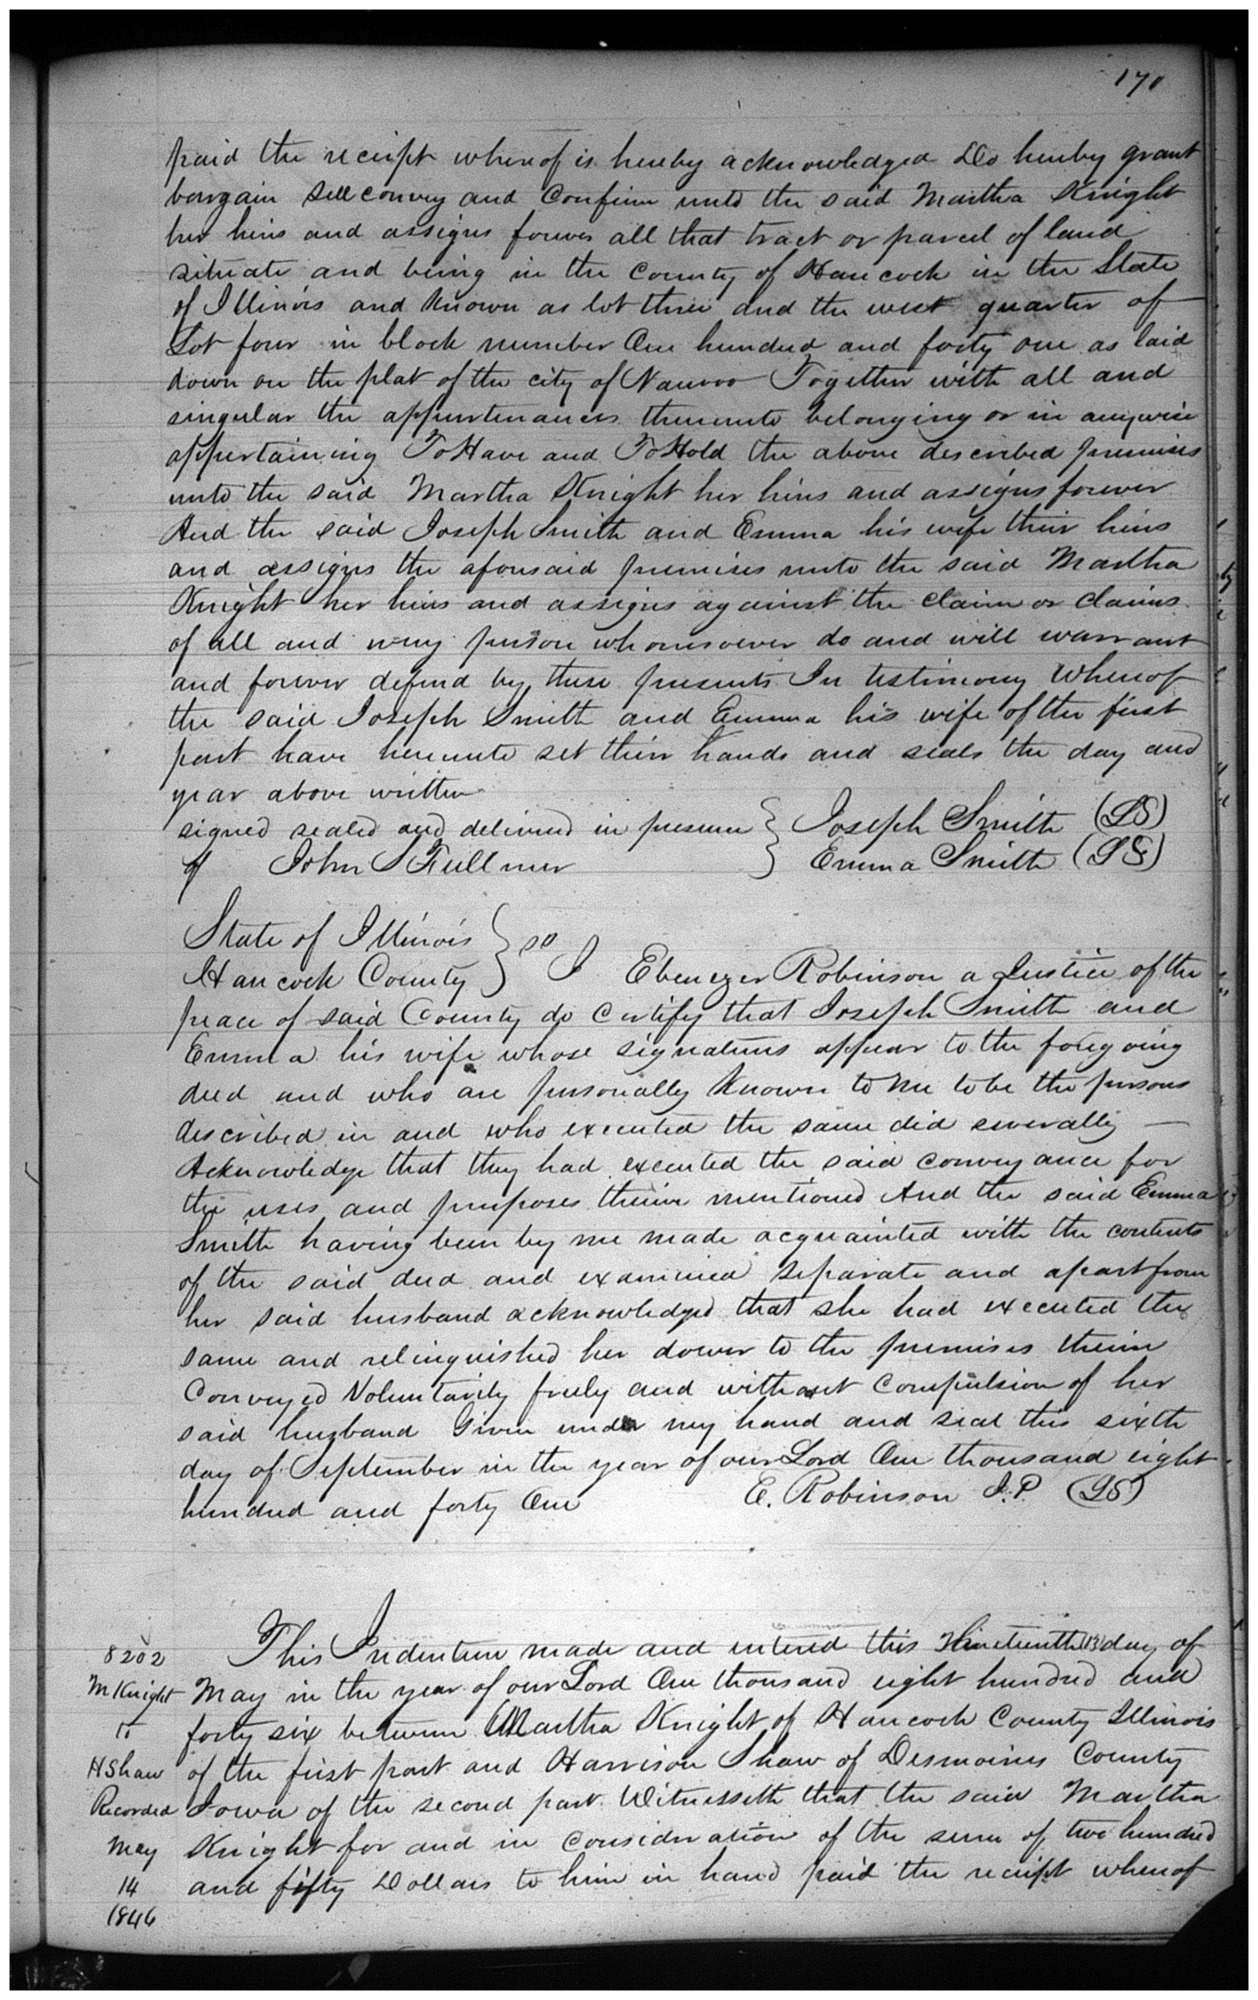 171
paid the receipt whereof is hereby acknowledged Do hereby grant
bargain sell convey and Confirm unto the said Martha Knight
her heirs and assigns forever all that tract or parcel of land
situate and being in the County of Hancock in the State
of Illinois and Known as lot three and the west quarter of
Lot four in block number One hundred and forty one as laid
down on the plat of the city of Nauvoo Together with all and
singular the appurtenances thereunto belonging or in anywise
appertaining To Have and To Hold the above described premises
unto the said Martha Knight her heirs and assigns forever
And the said Joseph Smith and Emma his wife their heirs
and assigns the aforesaid premises unto the said Martha
Knight her heirs and assigns against the claim or claims
of all and every person whomsoever do and will warrant
and forever defend by these presents In testimony Whereof
the said Joseph Smith and Emma his wife of the first
part have hereunto set their hands and seals the day and
year above written
signed sealed and delivered in presence } Joseph Smith (LS)
of John S Fullmer } Emma Smith (LS)
State of Illinois } ss
Hancock County } I Ebenezer Robinson a Justice of the
peace of said County do Certify that Joseph Smith and
Emma his wife whose signatures appear to the foregoing
deed and who are personally Known to me to be the persons
described in and who executed the same did severally —
Acknowledge that they had executed the said conveyance for
the uses and purposes therein mentioned And the said Emma
Smith having been by me made acquainted with the contents
of the said deed and examined separate and apart from
her said husband acknowledged that she had executed the
same and relinquished her dower to the premises therein
Conveyed Voluntarily freely and without Compulsion of her
said husband Given under my hand and seal this sixth
day of September in the year of our Lord One thousand eight
hundred and forty One E. Robinson J.P. (LS)
8202 This Indenture made and entered this Nineteenth (13) day of
M Knight May in the year of our Lord One thousand eight hundred and
to forty six between Martha Knight of Hancock County Illinois
H Shaw of the first part and Harrison Shaw of Desmoines County
Recorded Iowa of the second part Witnesseth that the said Martha
May Knight for and in Consideration of the sum of two hundred
14 and fifty Dollars to him in hand paid the receipt whereof
1846